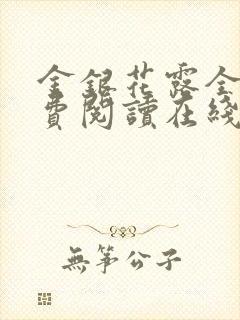 金銀花露全
費閱讀在綫
無箏公子